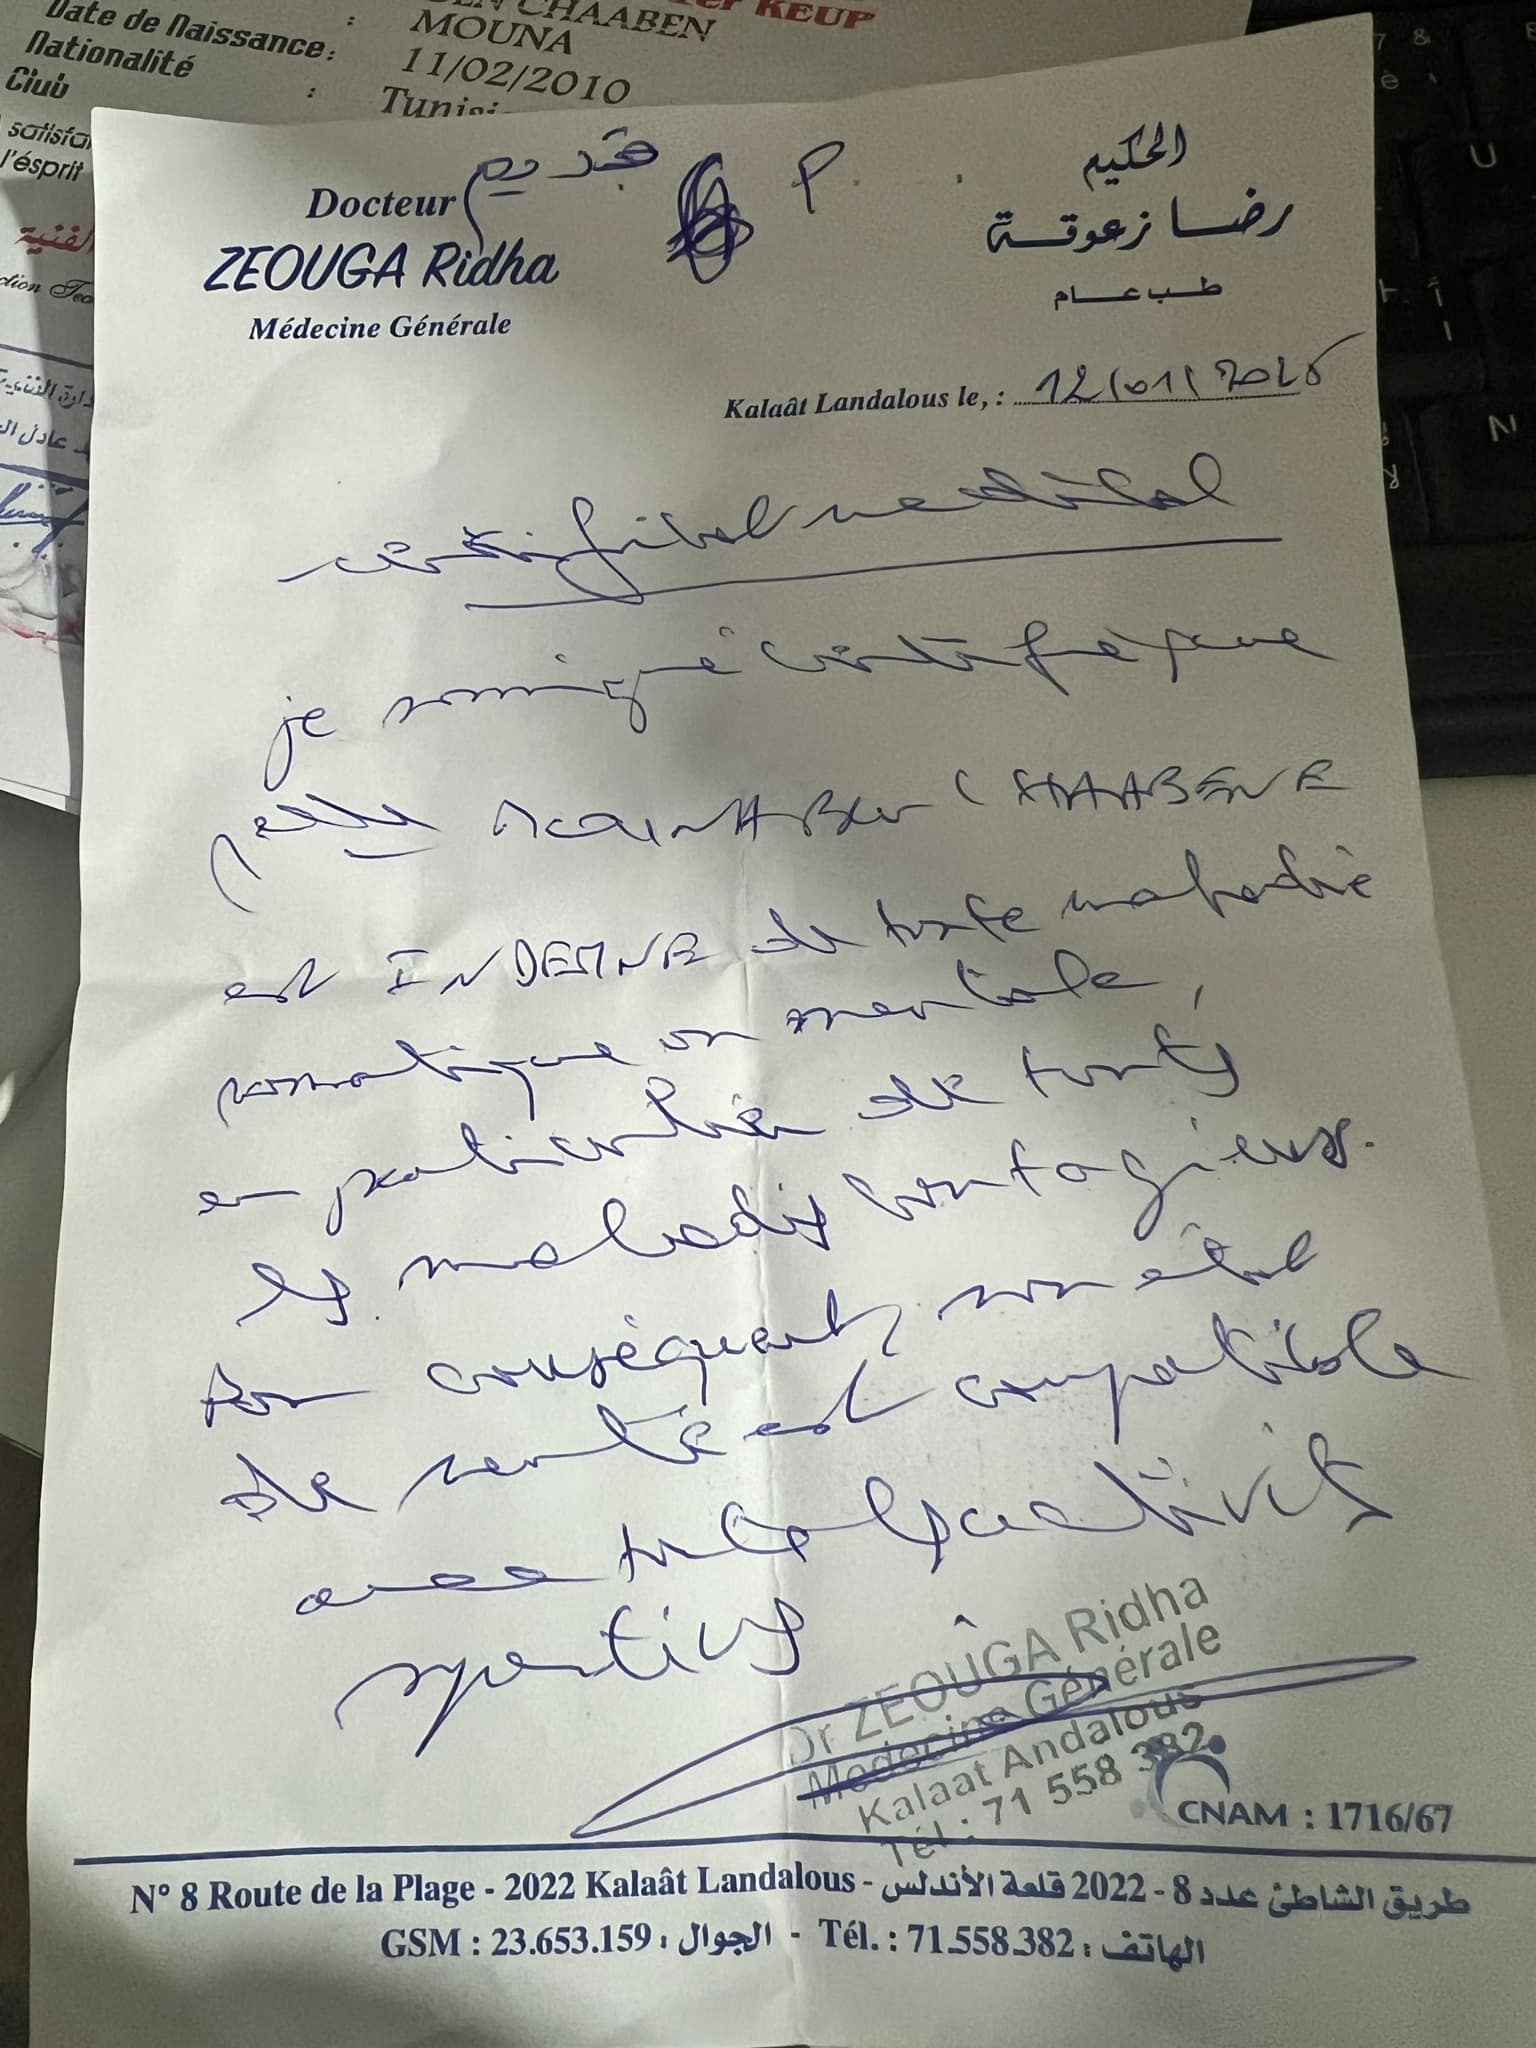 KEUP
BEN CHAABEN
MOUNA
Date de Naissance : 11/02/2010
Nationalité : Tunisi
Club
satisfa
l'ésprit
الفنية
قديم P
Docteur
ZEOUGA Ridha
Médecine Générale
الحكيم
رضا زعوقة
طب عام
Kalaât Landalous le, : 12/01/2026
certificat medical
je soussigné certifie que
MOUNA Ben CHAABENE
est INDEMNE de toute maladie
somatique ou mentale,
en particulier de touts
les maladies contagieuses.
Par conséquent, son état
de santé est compatible
avec toutes les activités
sportives
Dr ZEOUGA Ridha
Medecine Générale
Kalaat Andalous
Tél : 71 558 382
CNAM : 1716/67
N° 8 Route de la Plage - 2022 Kalaât Landalous - طريق الشاطئ عدد 8 - 2022 قلعة الأندلس
GSM : 23.653.159 : الجوال - Tél. : 71.558.382 : الهاتف